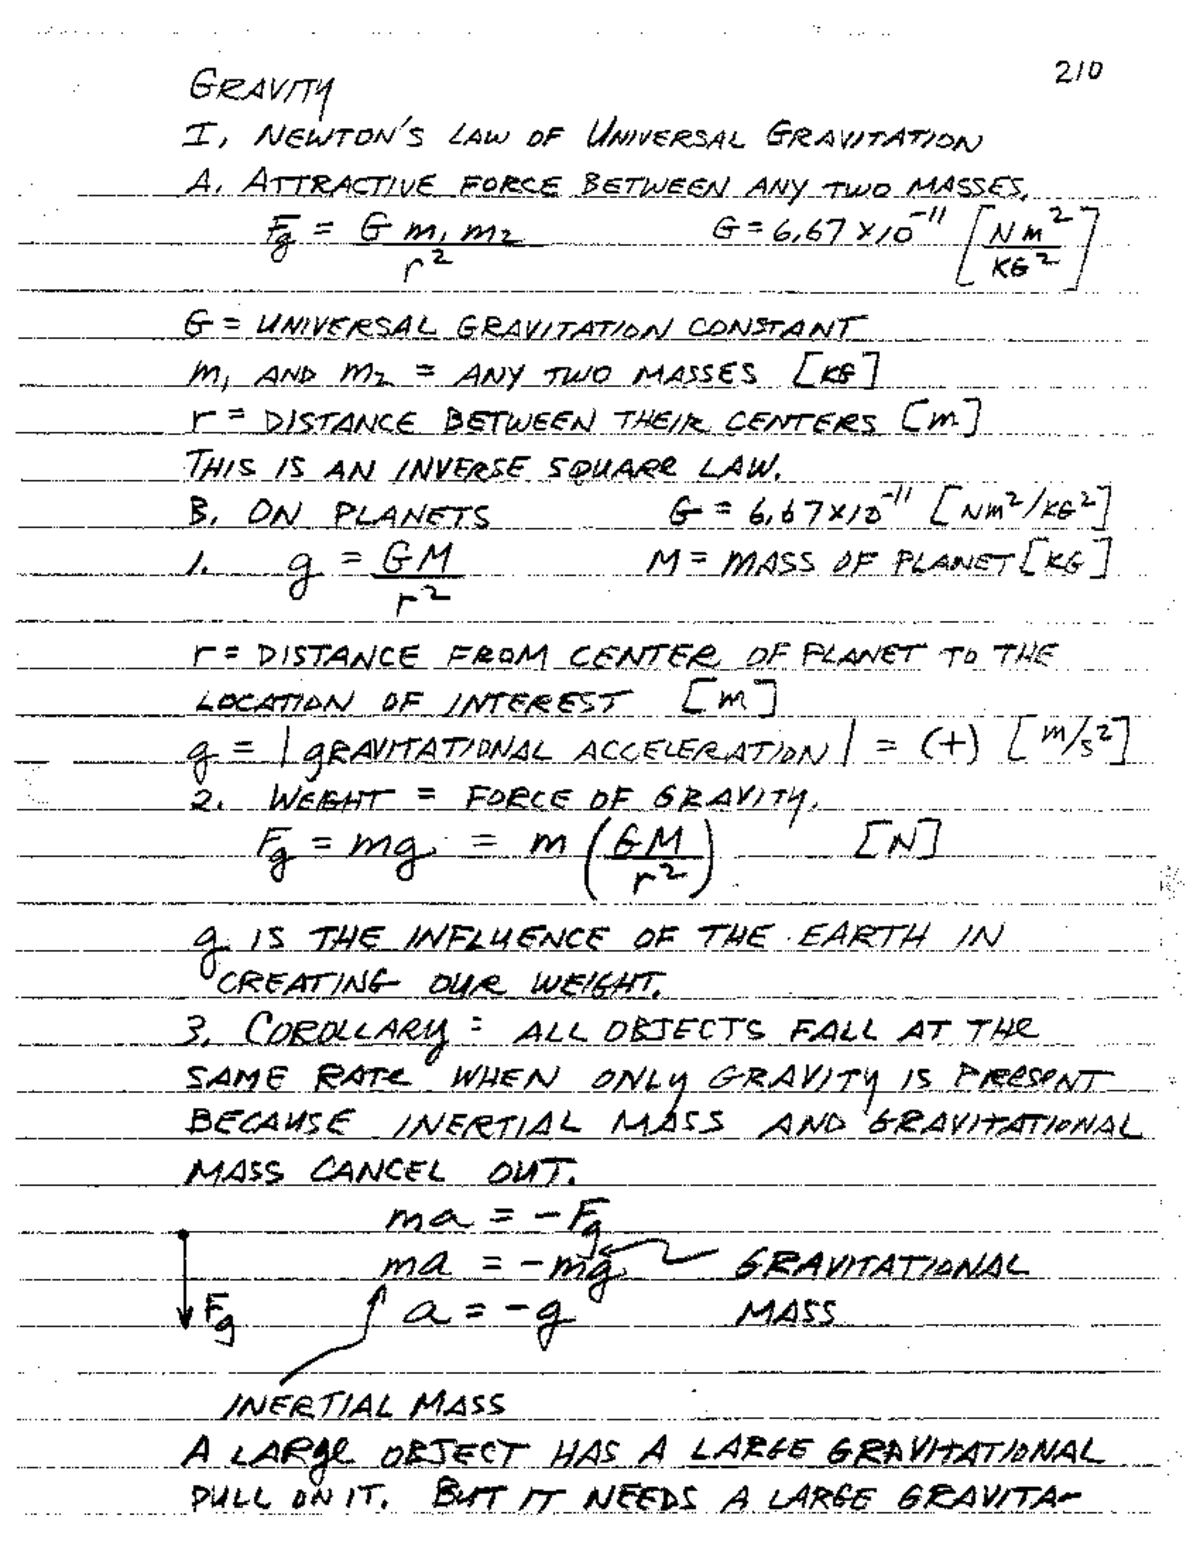 210
GRAVITY
I. NEWTON'S LAW OF UNIVERSAL GRAVITATION
A. ATTRACTIVE FORCE BETWEEN ANY TWO MASSES.
Fg = G m1 m2 / r² G = 6.67 x 10^-11 [Nm²/KG²]
G = UNIVERSAL GRAVITATION CONSTANT
m1 AND m2 = ANY TWO MASSES [KG]
r = DISTANCE BETWEEN THEIR CENTERS [m]
THIS IS AN INVERSE SQUARE LAW.
B. ON PLANETS G = 6.67x10^-11 [Nm²/KG²]
1. g = GM / r² M = MASS OF PLANET [KG]
r = DISTANCE FROM CENTER OF PLANET TO THE
LOCATION OF INTEREST [m]
g = | gRAVITATIONAL ACCELERATION | = (+) [m/s²]
2. WEIGHT = FORCE OF GRAVITY.
Fg = mg = m (GM / r²) [N]
g IS THE INFLUENCE OF THE EARTH IN
CREATING OUR WEIGHT.
3. COROLLARY: ALL OBJECTS FALL AT THE
SAME RATE WHEN ONLY GRAVITY IS PRESENT
BECAUSE INERTIAL MASS AND GRAVITATIONAL
MASS CANCEL OUT.
ma = -Fg
ma = -mg GRAVITATIONAL
Fg a = -g MASS
INERTIAL MASS
A LARGE OBJECT HAS A LARGE GRAVITATIONAL
PULL ON IT. BUT IT NEEDS A LARGE GRAVITA-